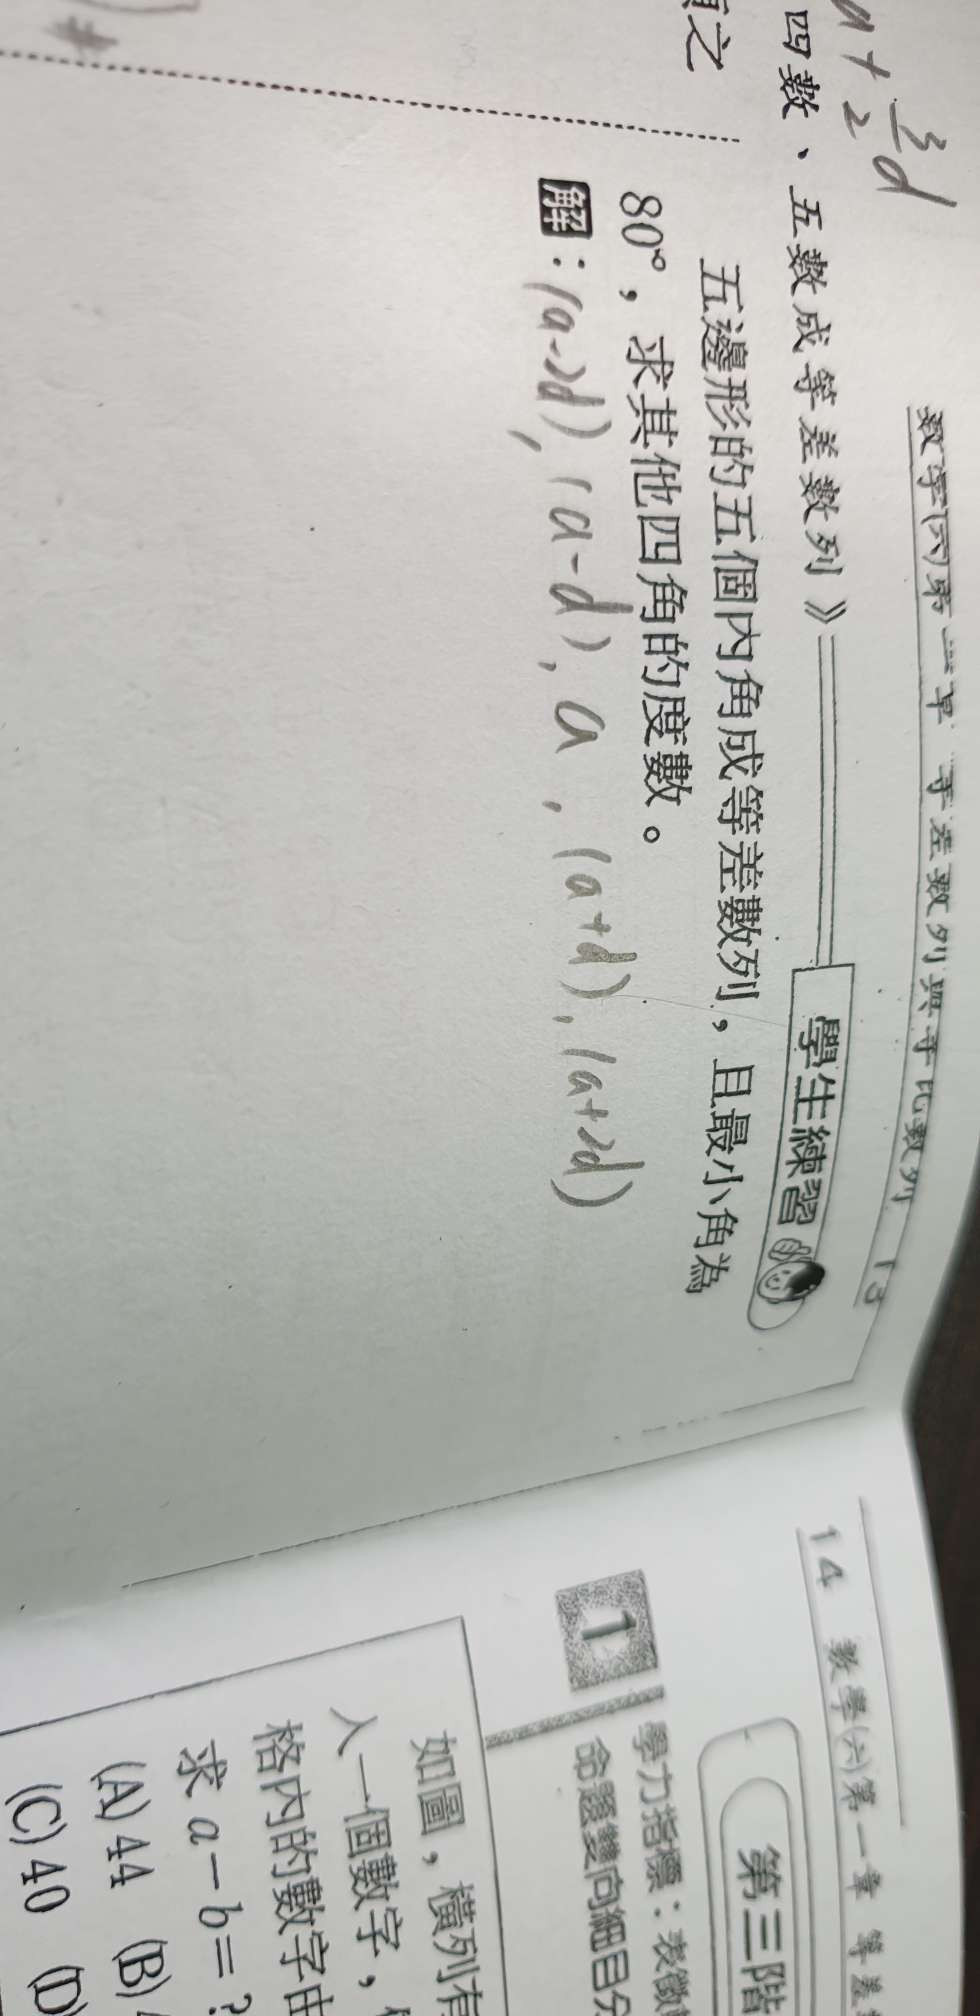 a + 3/2 d
數學(六)第一章 等差數列與等比數列 13
四數、五數成等差數列》
學生練習
五邊形的五個內角成等差數列，且最小角為
80°，求其他四角的度數。
解：(a-2d), (a-d), a, (a+d), (a+2d)
之
#
14 數學(六)第一章 等差
第三階
1
學力指標：表徵
命題雙向細目分
如圖，橫列有
入一個數字，
格內的數字由
求 a－b＝？
(A) 44 (B)
(C) 40 (D)